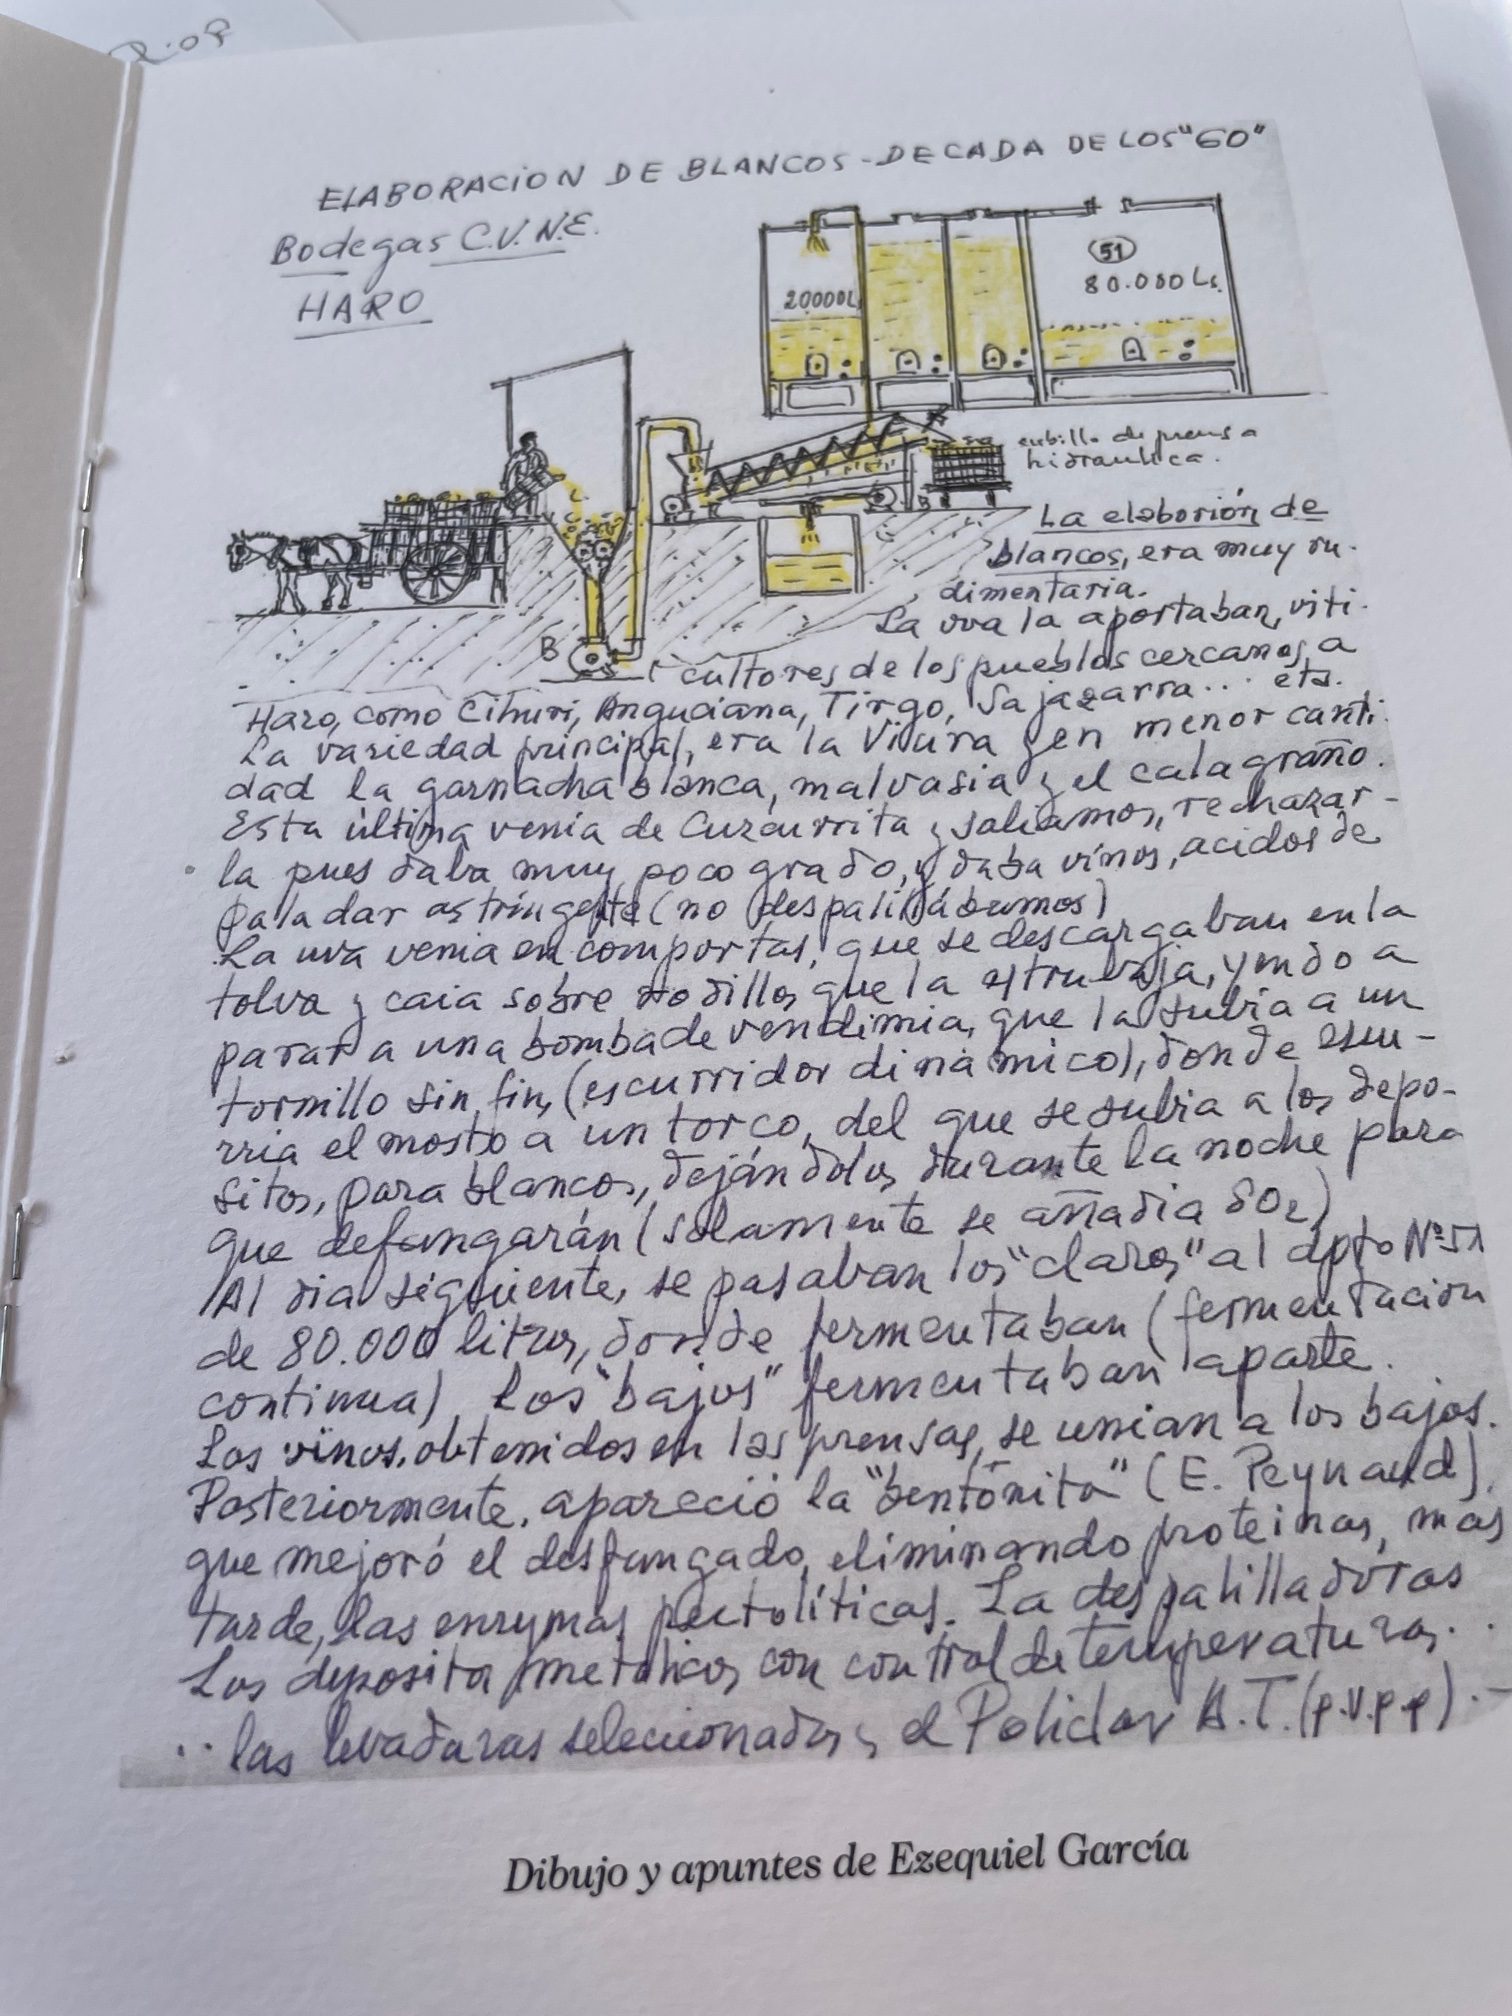 ELABORACION DE BLANCOS - DECADA DE LOS "60"
Bodegas C.V.N.E.
HARO
20000 L
51
80.000 Ls.
cubillo de prensa
hidraulica.
B
La elaborión de
blancos, era muy ru-
dimentaria.
La uva la aportaban, viti-
cultores de los pueblos cercanos a
Haro, como Cihuri, Anguciana, Tirgo, Sajazarra... etz.
La variedad principal, era la Viura y en menor canti-
dad la garnacha blanca, malvasia y el calagraño.
Esta última venia de Curcurrita y soliamos, rechazar-
la pues daba muy poco grado, y daba vinos, acidos de
paladar astringente (no despalillábamos)
La uva venia en comportas, que se descargaban en la
tolva y caia sobre rodillos que la estrujaja, yendo a
parar a una bomba de vendimia, que la subia a un
tornillo sin fin, (escurridor dinámico), donde escu-
rria el mosto a un torco, del que se subia a los depo-
sitos, para blancos, dejándolos durante la noche para
que defangarán (solamente se añadia SO2)
Al dia siguiente, se pasaban los "claros" al dpto Nº 51
de 80.000 litros, donde fermentaban (fermentación
continua) Los "bajos" fermentaban aparte.
Los vinos, obtenidos en las prensas, se unian a los bajos.
Posteriormente, apareció la "bentonita" (E. Peynaud),
que mejoró el desfangado, eliminando proteinas, mas
tarde, las enzymas pectolíticas. La despalilladoras
Los deposito metalicos, con control de temperaturas. . .
.. las levaduras seleccionadas y el Policlar A.T. (p.v.p.p) .-
Dibujo y apuntes de Ezequiel García